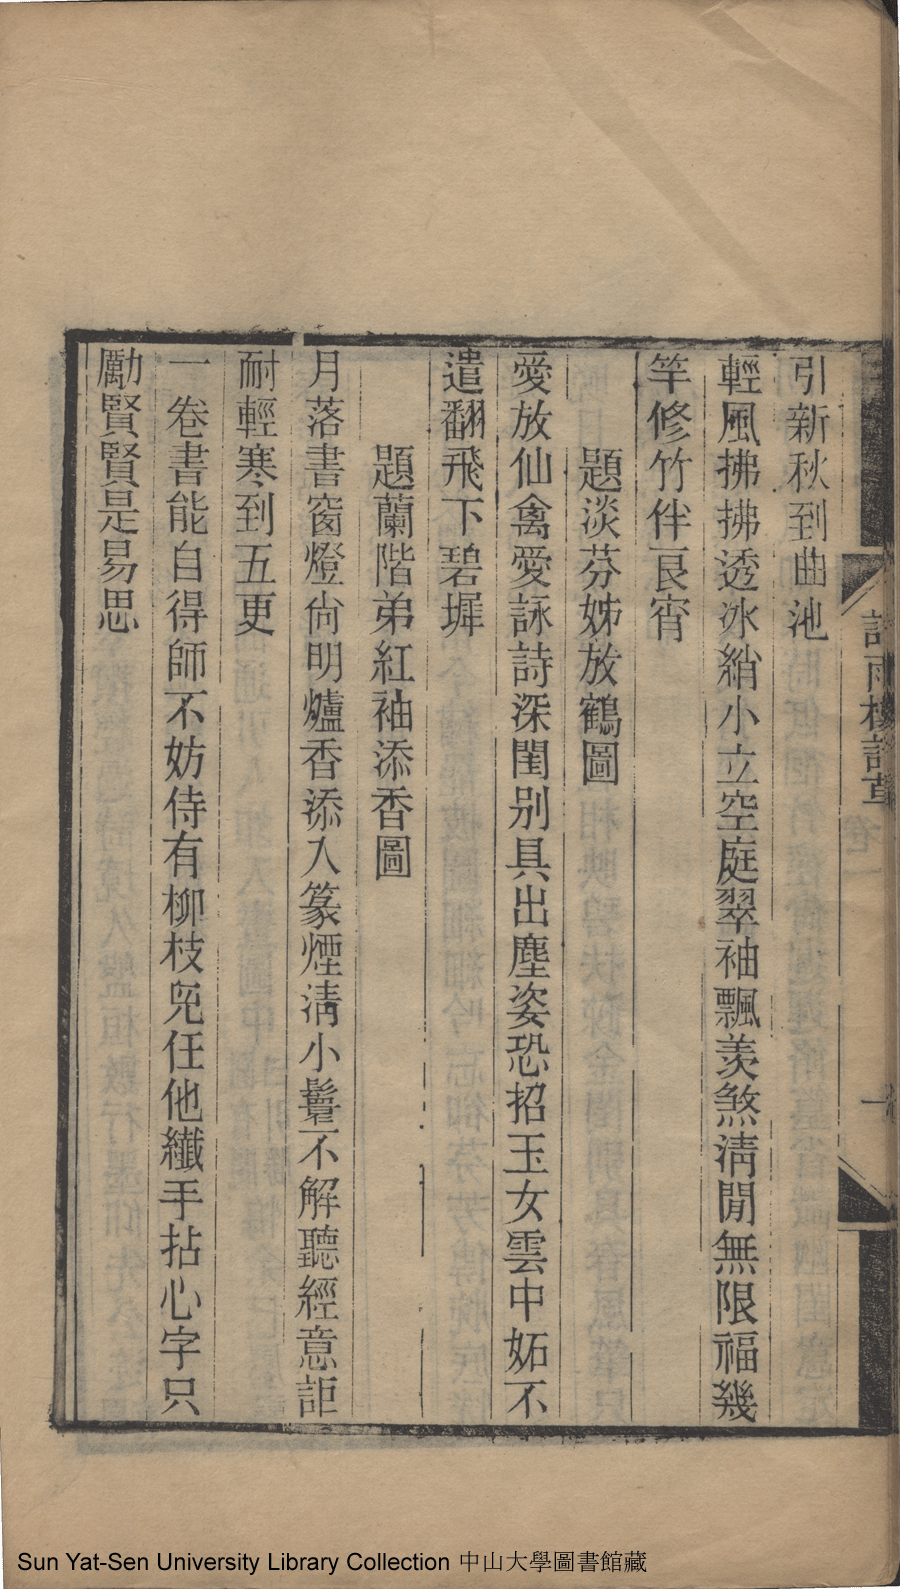 引新秋到曲池
輕風拂拂透冰綃小立空庭翠袖飄羨煞淸閒無限福幾
竿修竹伴良宵
題淡芬姊放鶴圖
愛放仙禽愛詠詩深閨别具出塵姿恐招玉女雲中妬不
遣翻飛下碧墀
題蘭階弟紅袖添香圖
月落書窗燈尙明爐香添入篆煙淸小鬟不解聽經意詎
耐輕寒到五更
一卷書能自得師不妨侍有柳枝兒任他纖手拈心字只
勵賢賢是易思
雨樓詩草
卷一
Sun Yat-Sen University Library Collection 中山大學圖書館藏